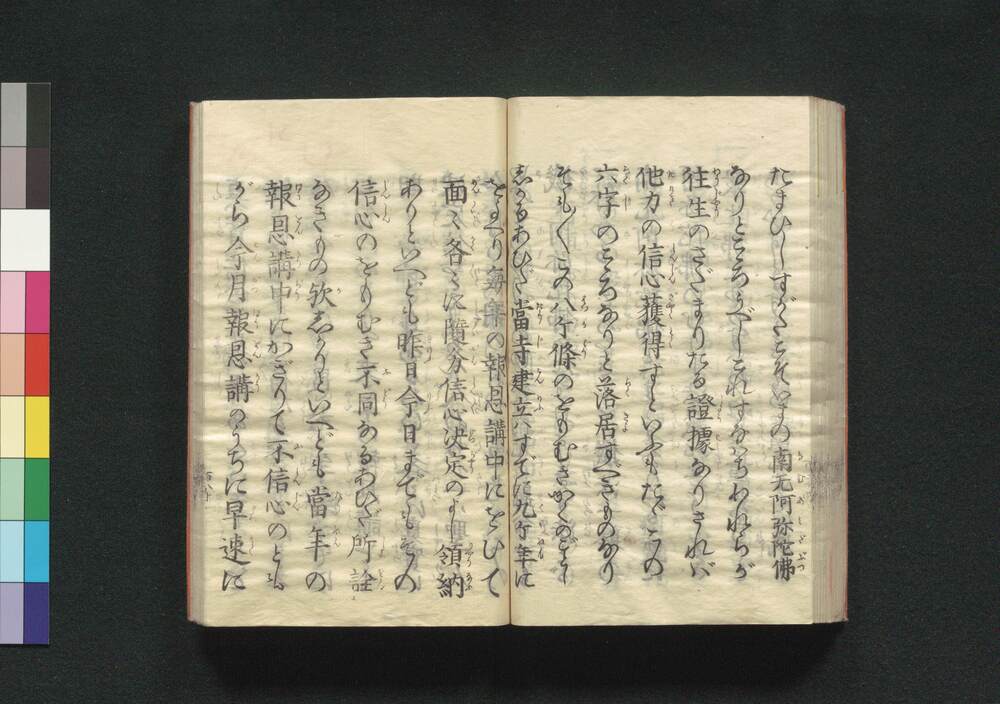 たまひしすがたこそいまの南无阿弥陀佛
なりところうべしこれすなはちわれらが
往生のさだまりたる證據なりされバ
他力の信心獲得すといふもたゞこの
六字のこゝろなりと落居すべきものなり
そも〳〵この八ケ條のをもむきかくのごとし
しかるあひだ當寺建立ハすでに九ケ年に
をよべり毎年の報恩講中にをひて
面〻各〻に随分信心决定のよし領納
ありといへども昨日今日までもその
信心のをもむき不同なるあひだ所詮
なきもの欤しかりといへども當年の
報恩講中にかぎりて不信心のともか
がら今月報恩講のうちに早速に